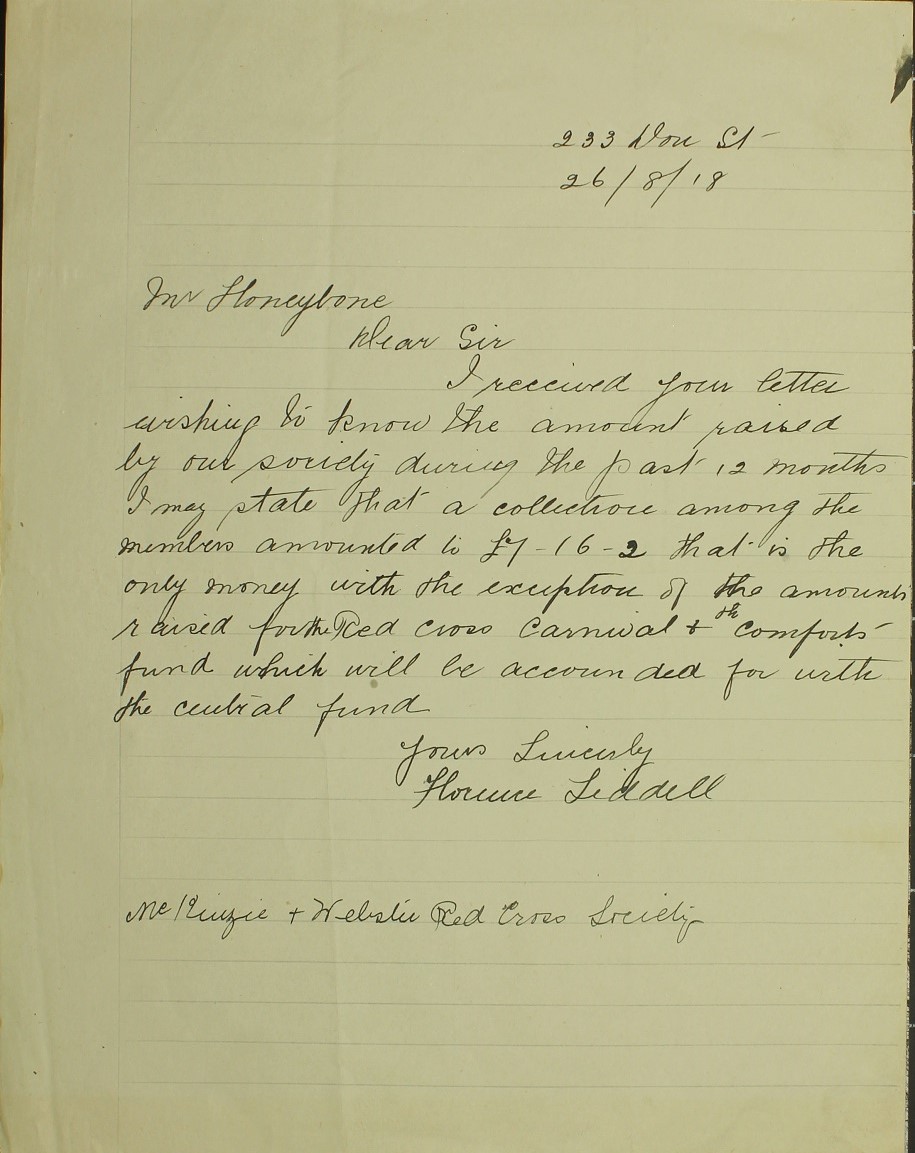 233 Don St
26/8/18
Mr Honeybone
Dear Sir
I received your letter
wishing to know the amount raised
by our society during the past 12 months
I may state that a collection among the
members amounted to £7-16-2 that is the
only money with the exception of the amounts
raised for the Red Cross Carnival + th comforts
fund which will be accounded for with
the central fund
Yours Sincerly
Florence Liddell
McKinzie + Webster Red Cross Society